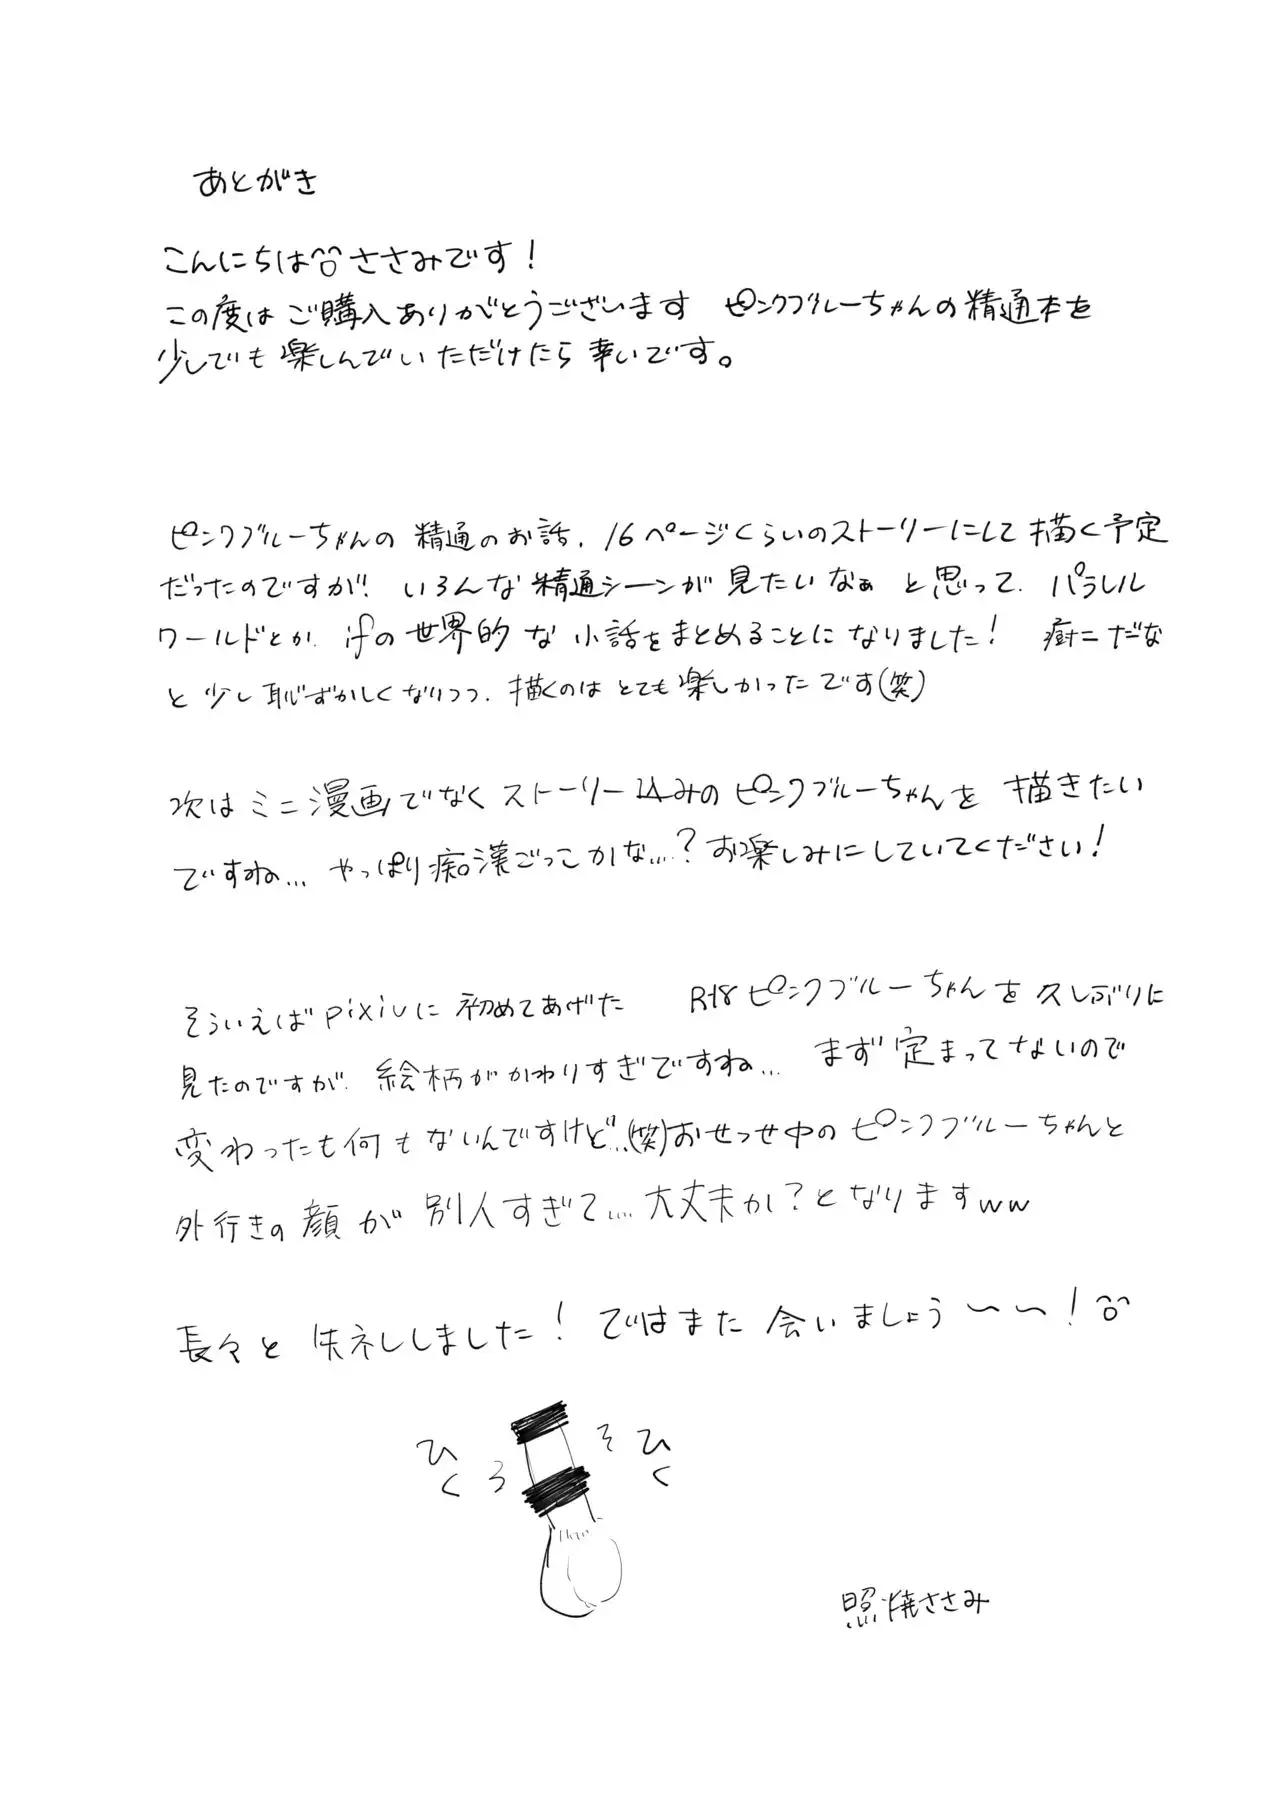 あとがき
こんにちは ささみです!
この度はご購入ありがとうございます ピンクブルーちゃんの精通本を
少しでも楽しんでいただけたら幸いです。
ピンクブルーちゃんの精通のお話、16ページくらいのストーリーにして描く予定
だったのですが!いろんな精通シーンが見たいなぁと思って、パラレル
ワールドとか、ifの世界的な小話をまとめることになりました!
だな
と少し恥ずかしくなりつつ、描くのはとても楽しかったです(笑)
次はミニ漫画でなくストーリー込みのピンクブルーちゃんを描きたい
ですね… やっぱり痴漢ごっこかな…?お楽しみにしていてください!
そういえばpixivに初めてあげた R18ピンクブルーちゃんを久しぶりに
見たのですが、絵柄がかわりすぎですね… まず定まってないので
変わったも何もないんですけど…(笑)おせっせ中のピンクブルーちゃんと
外行きの顔が別人すぎて…大丈夫か?となりますww
長々と失礼しました!ではまた会いましょう〜〜!
ひく
そろ
ひく
照焼ささみ